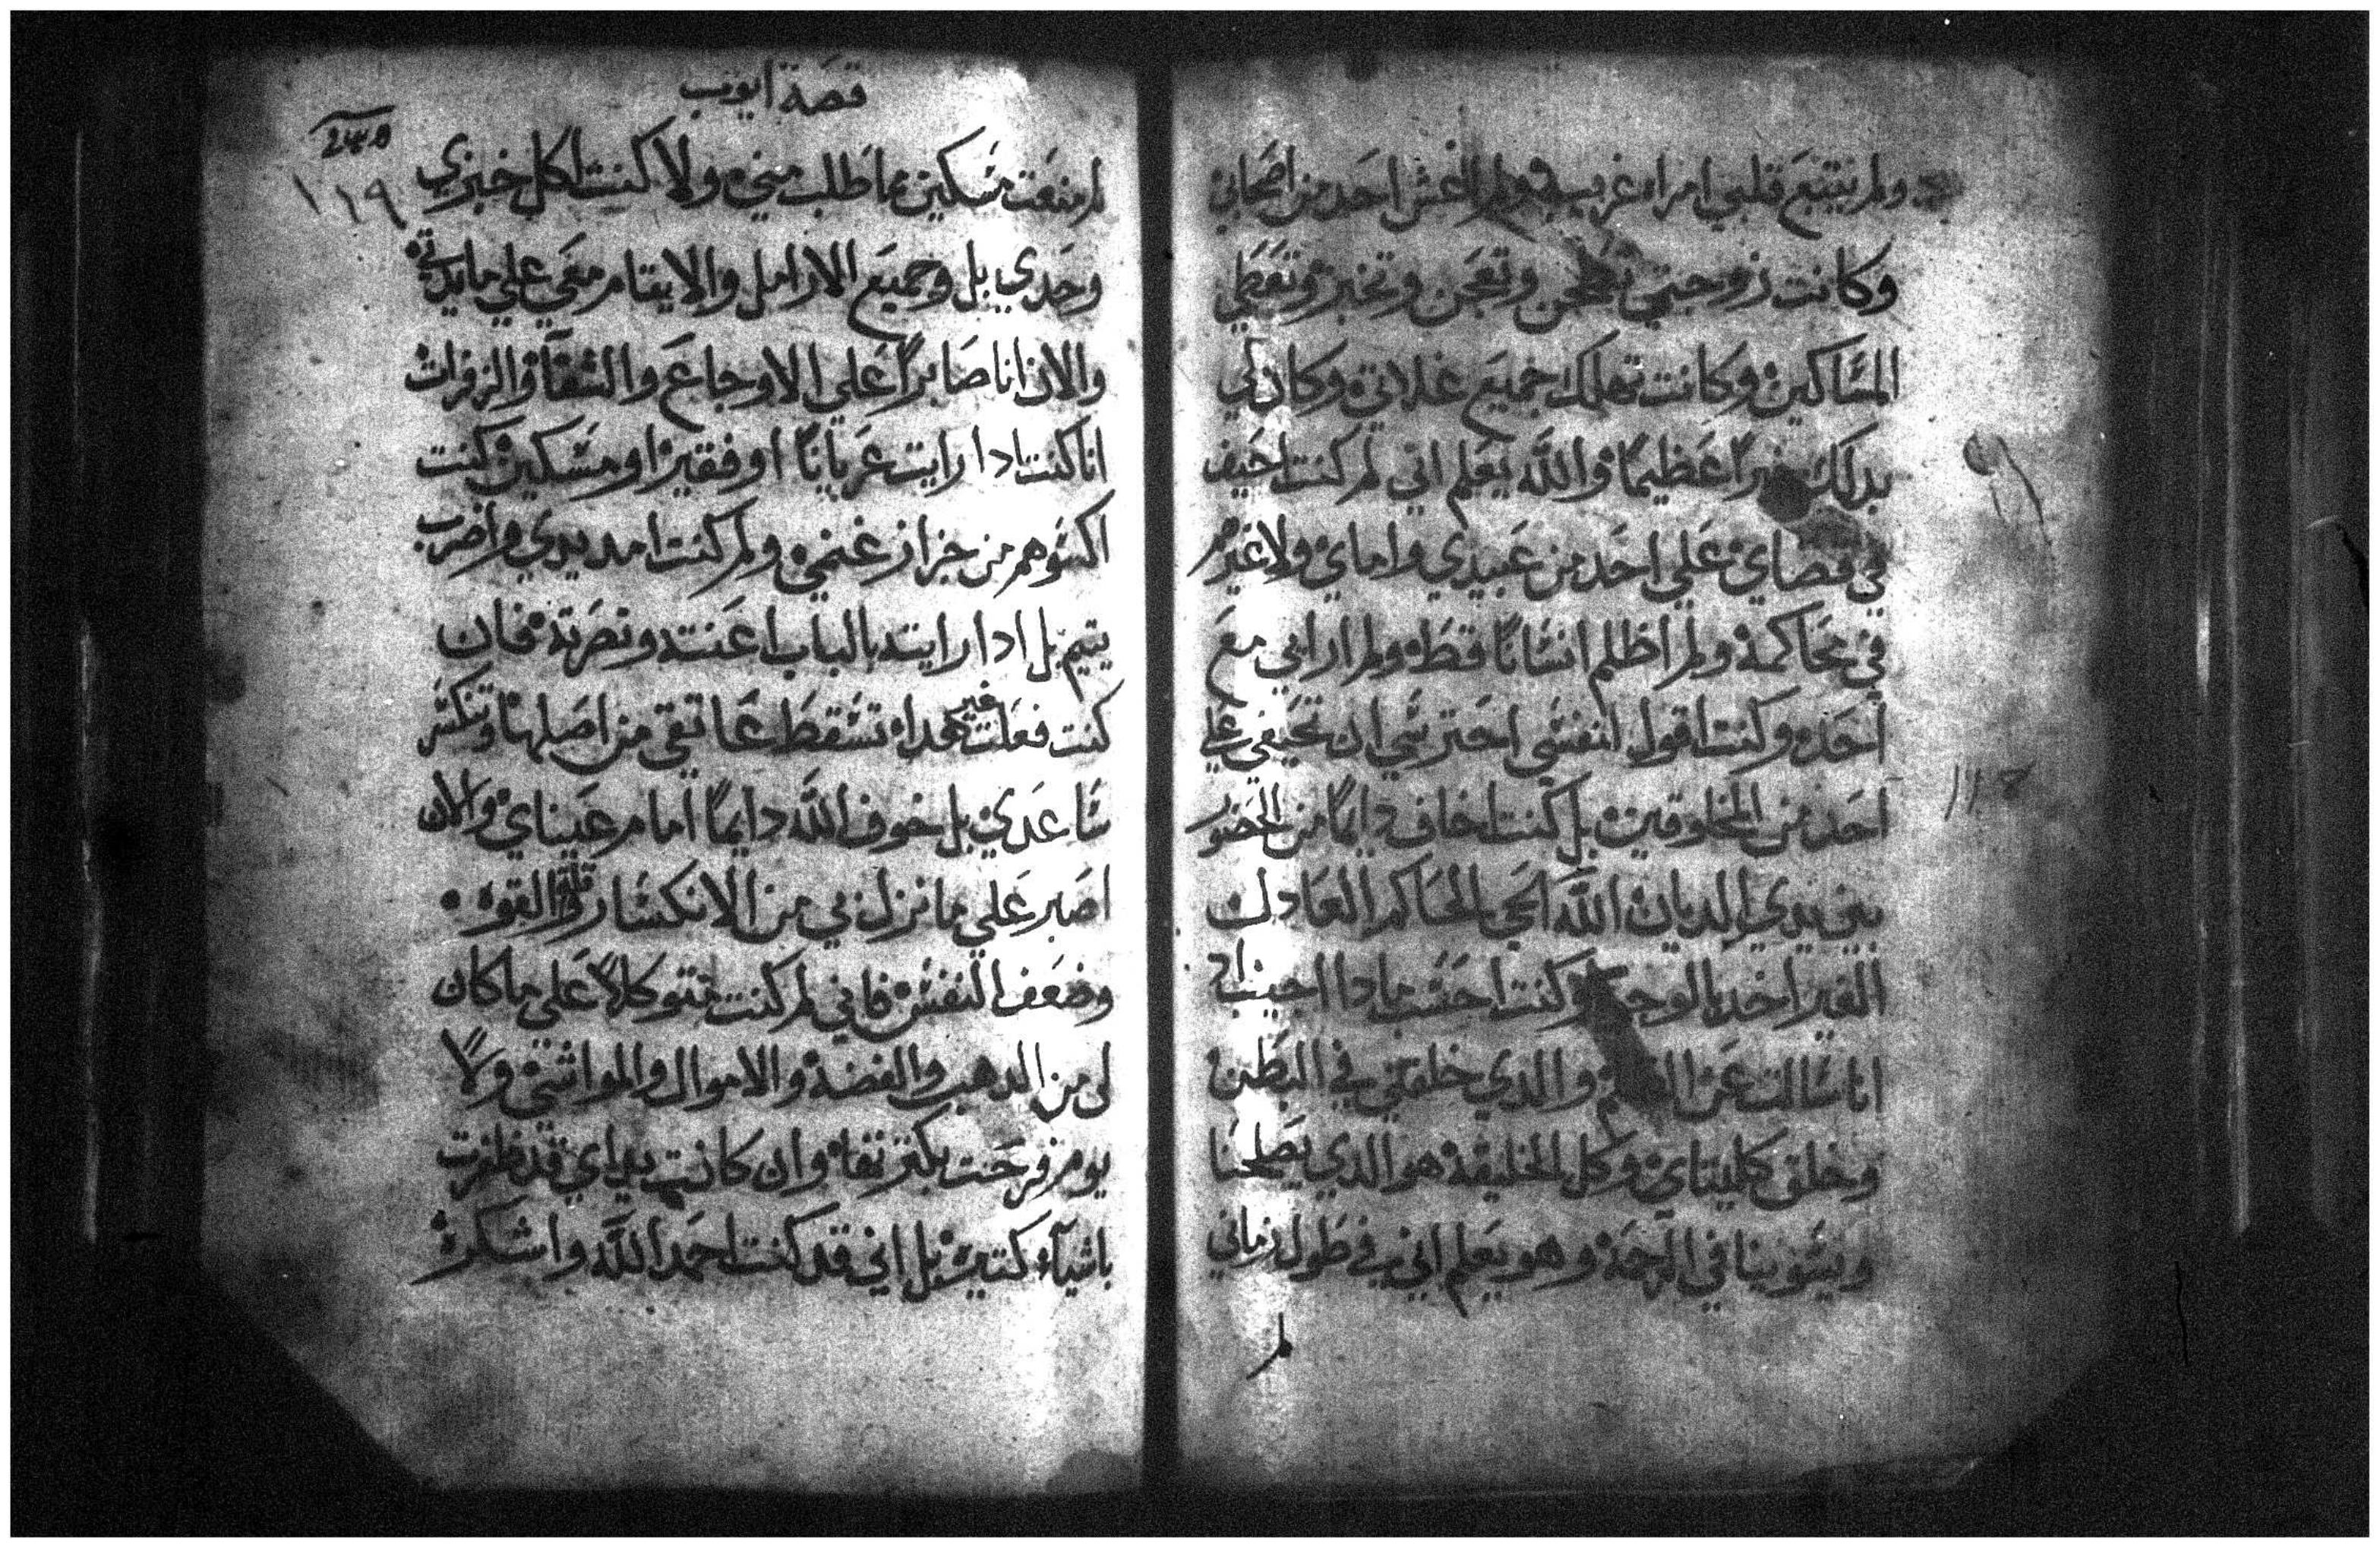 ولم يتبع قلبي امراه غريبه ولم اغش احد من اصحابي
وكانت زوجتي تطحن وتعجن وتخبز وتعطي
المساكين وكانت تملك جميع غلاتي وكان لي
بدلك عظيما والله يعلم اني لم كنت احيف
في قضاي علي احد من عبيدي واماي ولا غيرهم
في محاكمة ولم اظلم انسانا قط ولم ارابي مع
احد وكنت اقول لنفسي احترسي ان تحيفي علي
احد من المخلوقين بل كنت اخاف دايما من الحضور
بين يدي الديان الله الحي الحاكم العادل
الغير اخد بالوجوه وكنت احسب مادا اجيب ادا
انا سالت عن والدي خلقني في البطن
وخلق كليتاي وكل الخليقة هو الدي يصلحنا
ويسوينا في الرحمة وهو يعلم اني في طول زماني
لم
قصة ايوب
١١٩
لم منعت مسكين ما طلب مني ولا كنت اكل خبزي
وحدي بل وجميع الارامل والايتام معي علي مايدتي
والان انا صابرا علي الاوجاع والشقآ والزفرات
انا كنت ادا رايت عريانا او فقير او مسكين كنت
اكسوهم من جزاز غنمي ولم كنت امد يدي واضرب
يتيم بل ادا رايته بالباب اعنته ونصرته فان
كنت فعلت غير هدا تسقط عاتقي من اصلها وتنكسر
ساعدي بل خوف الله دايما امام عيناي والان
اصبر علي ما نزل بي من الانكسار وقلة القوه
وضعف النفس فاني لم كنت متوكلا علي ما كان
لي من الدهب والفضة والاموال والمواشي ولا
يوم فرحت بكتر نقاه وان كانت يداي قد ظفرت
باشيآء كتيره بل اني قد كنت احمد الله واشكره